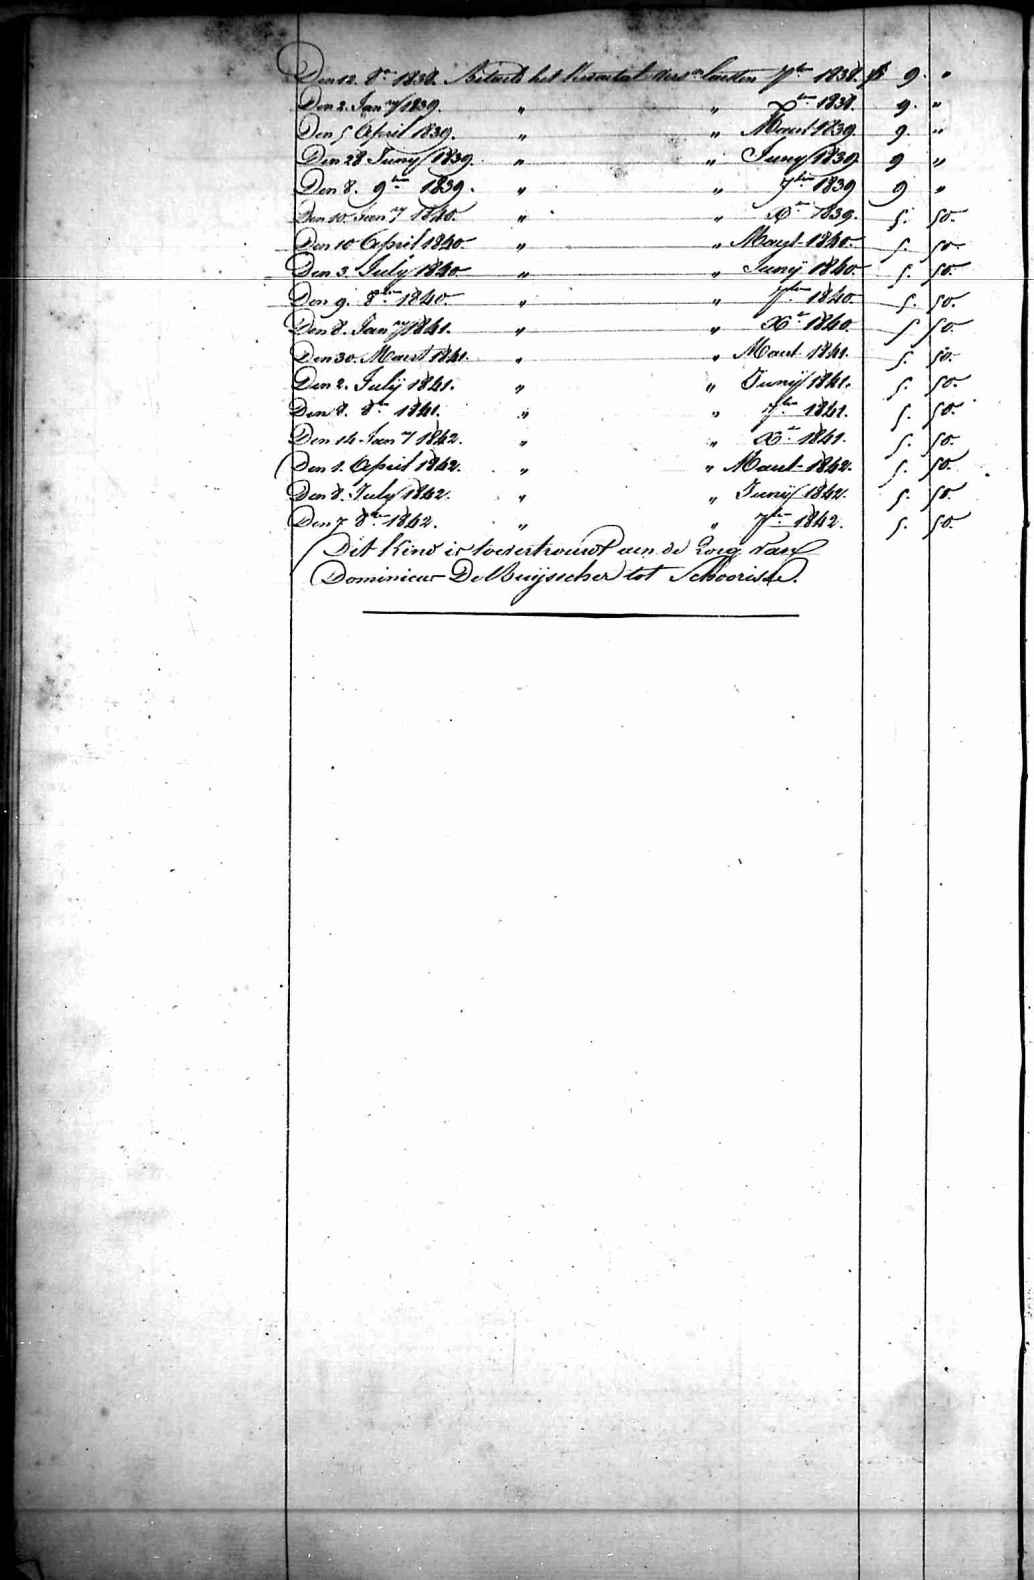 Den 12. 8.er 1838. Betaeld het kwartael verv.n laesten 7ber 1838. f 9. "
Den 2. Jan.ry 1839. " " Xer 1838. 9. "
Den 5 April 1839. " " Maert 1839. 9. "
Den 28 Juny 1839. " " Juny 1839. 9 "
Den 8. 9ber 1839. " " 7ber 1839 9 "
Den 10. Jan.ry 1840. " " Xer 1839. 5. 50.
Den 10 April 1840. " " Maert 1840. 5. 50
Den 3. July 1840 " " Junij 1840 5. 50.
Den 9. 8ber 1840. " " 7ber 1840 5. 50.
Den 8. Jan.ry 1841. " " Xer 1840. 5 50.
Den 30. Maert 1841. " " Maert 1841. 5. 50.
Den 2. Julij 1841. " " Junij 1841. 5. 50.
Den 8. 8er 1841. " " 7ber 1841. 5. 50.
Den 14 Jan.ry 1842. " " Xer 1841. 5. 50.
Den 1. April 1842. " " Maert 1842. 5. 50.
Den 8. July 1842. " " Junij 1842. 5. 50.
Den 7 8ber 1842. " " 7ber 1842. 5. 50.
Dit Kind is toevertrouwt aen de zorg van
Dominicus De Buijsscher tot Schoorisse.